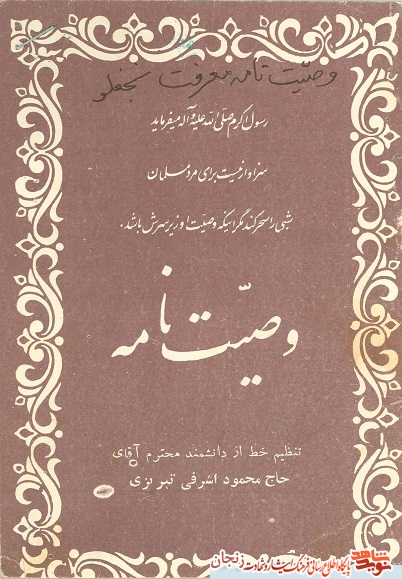 وصیّت نامه معرفت نجفلو
رسول اکرم صلّی الله علیه و آله میفرماید
سزاوار نیست برای مرد مسلمان
شبی را سحر کند مگر اینکه وصیّت او زیر سرش باشد.
وصیّت نامه
تنظیم خط از دانشمند محترم آقای
حاج محمود اشرفی تبریزی
نوید شاهد
پایگاه اطلاع رسانی فرهنگ ایثار و شهادت زنجان